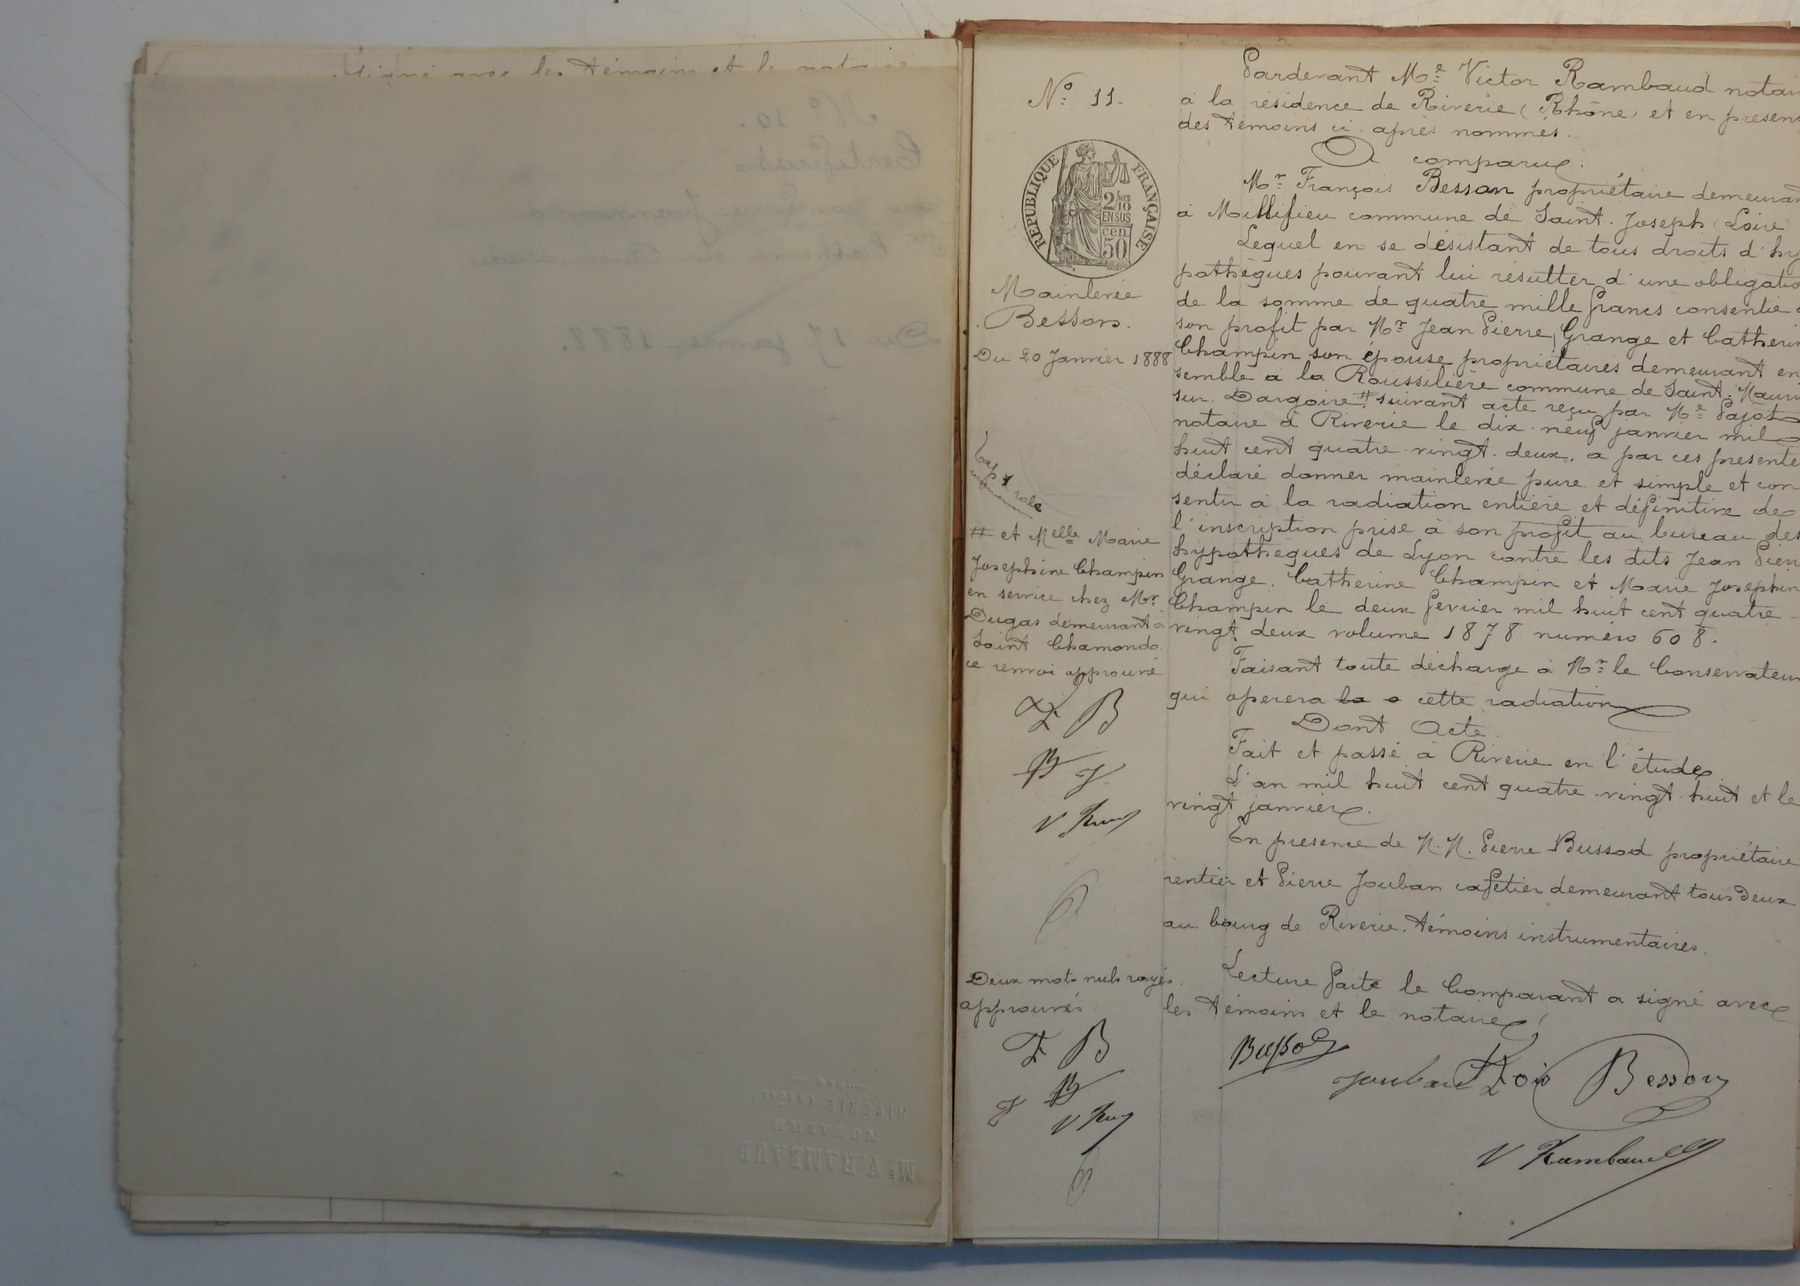 signé avec les témoins et le notaire
N° 11.
RÉPUBLIQUE FRANÇAISE
2/10 EN SUS
50 cen.
Mainlevée
Besson.
Du 20 Janvier 1888
Exp 1 role
# et Melle Marie
Josephine Champin
en service chez Mr
Dugas demeurant à
Saint Chamond
ce renvoi approuvé
F B
B J
V Ram
Deux mots nuls rayés
approuvés
F B
B
J
V Ram
Pardevant Me Victor Rambaud notai
à la résidence de Riverie (Rhône) et en présen
des témoins ci-après nommés.
A comparu
Mr François Besson propriétaire demeuran
à Millifieu commune de Saint-Joseph Loire
Lequel en se désistant de tous droits d'hy
pothèques pouvant lui résulter d'une obligatio
de la somme de quatre mille francs consentie
son profit par Mr Jean Pierre Grange et Catherin
Champin son épouse propriétaires demeurant en
semble à la Roussilière commune de Saint-Mauri
sur-Dargoire # suivant acte reçu par Me Pajot
notaire à Riverie le dix-neuf janvier mil
huit cent quatre-vingt-deux, a par ces présente
déclaré donner mainlevée pure et simple et con
sentir à la radiation entière et définitive de
l'inscription prise à son profit au bureau des
hypothèques de Lyon contre les dits Jean Pierr
Grange, Catherine Champin et Marie Josephin
Champin le deux fevrier mil huit cent quatre-
vingt deux volume 1878 numéro 608.
Faisant toute décharge à Mr le Conservateur
qui operera la cette radiation
Dont Acte
Fait et passé à Riverie en l'étude
L'an mil huit cent quatre-vingt-huit et le
vingt janvier.
En présence de M.M. Pierre Bussod propriétaire
rentier et Pierre Jouban cafetier demeurant tous deux
au bourg de Riverie, témoins instrumentaires.
Lecture faite le Comparant a signé avec
les témoins et le notaire
Bussod
Jouban Fois Besson
V Rambaud